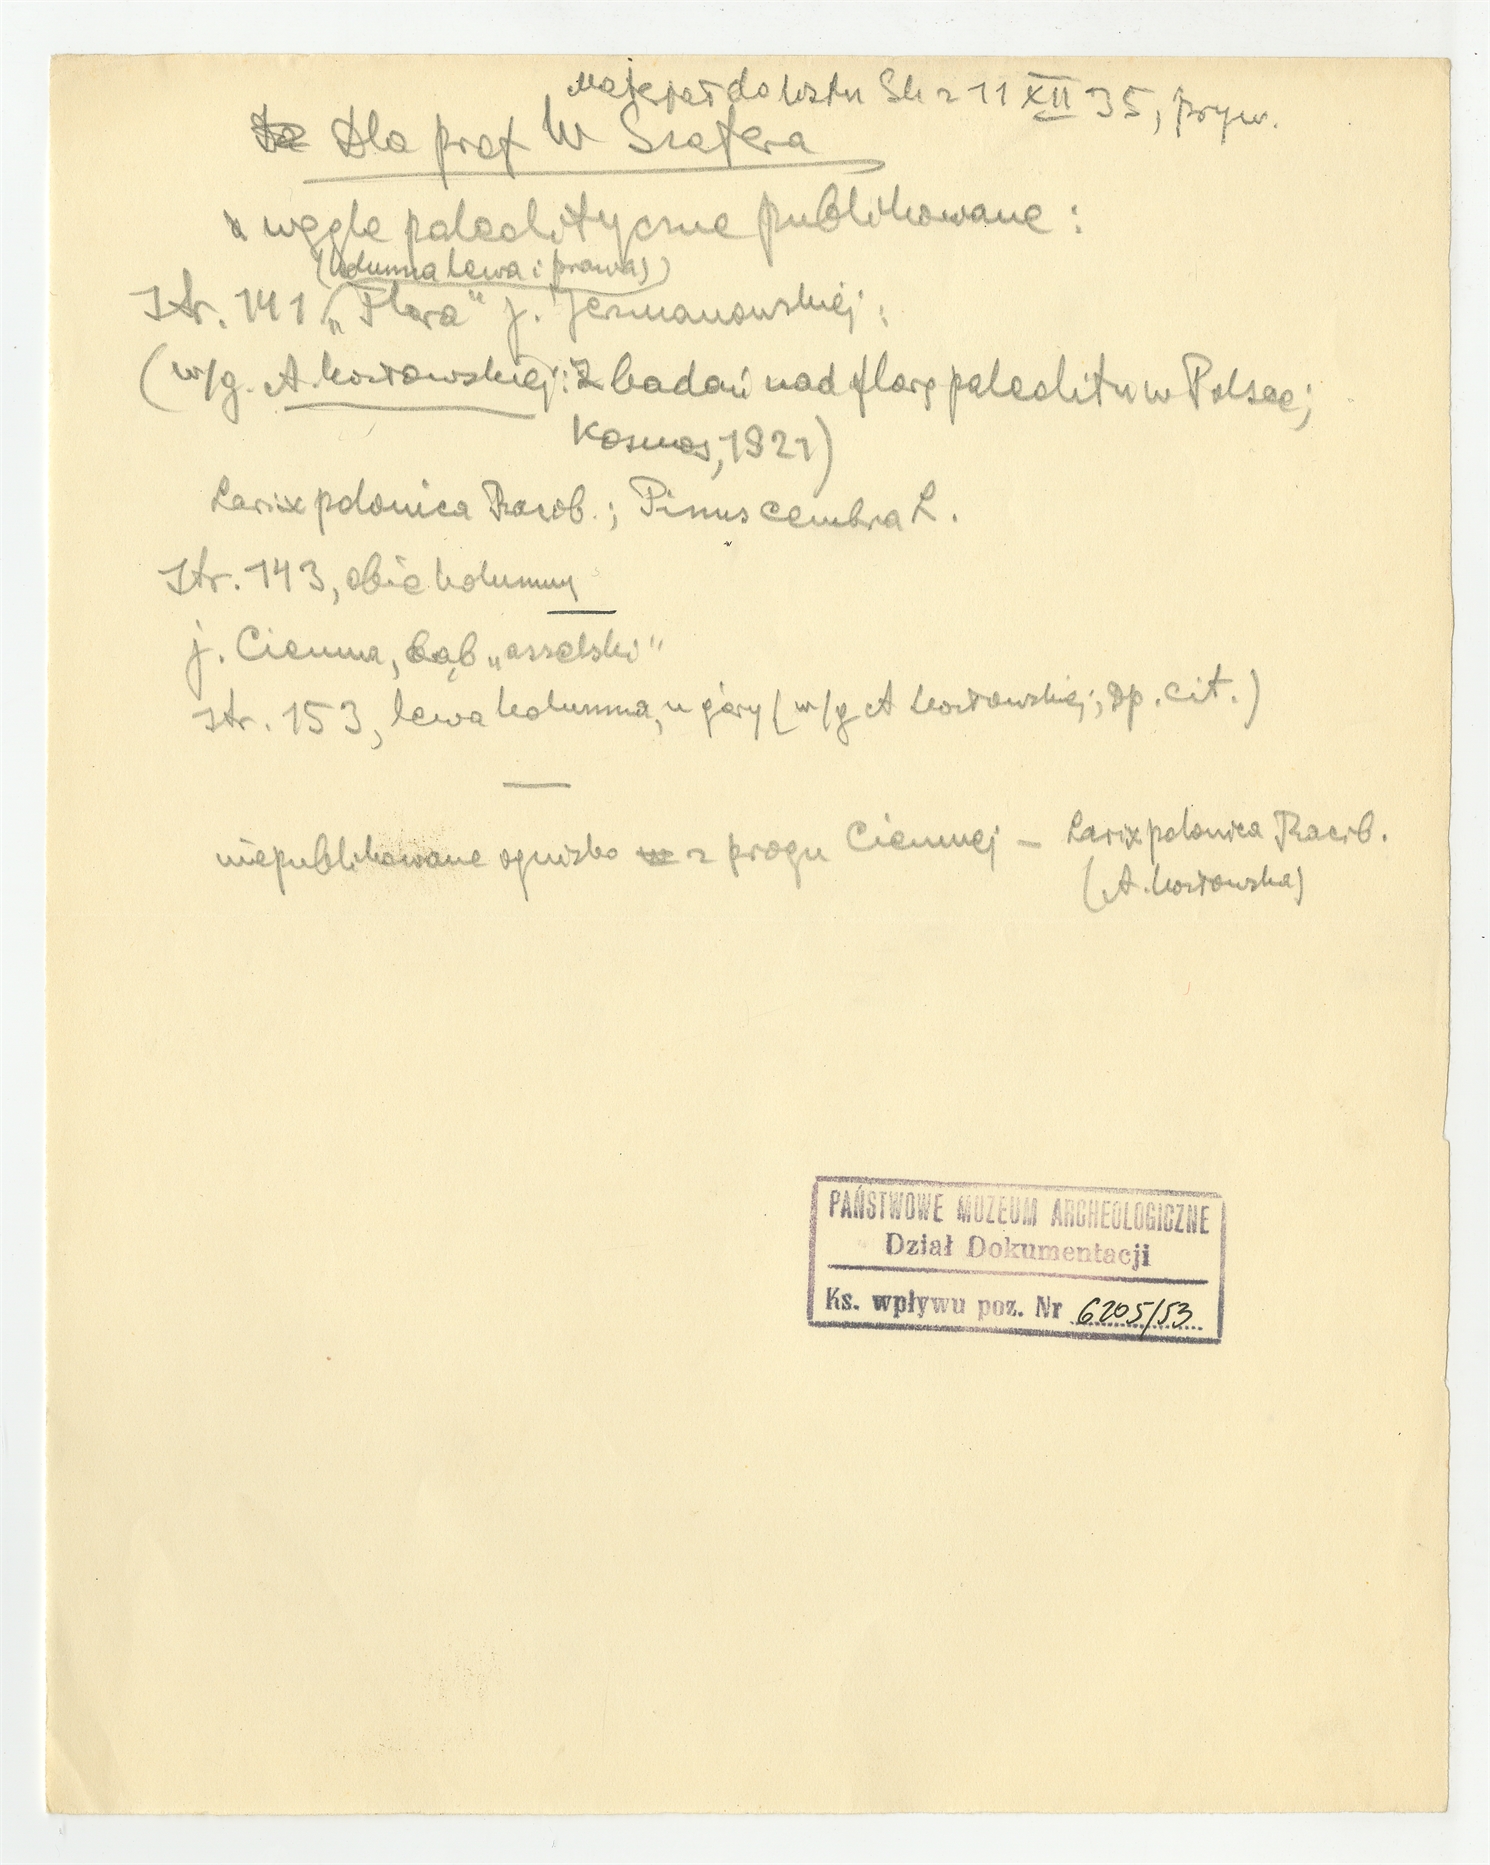 Materjał do listu Sk z 11 XII 35, pryw.
Dla prof W Szafera
węgle paleolityczne publikowane:
(kolumna lewa i prawa)
Str. 141 „Flora" j. Jerzmanowskiej:
(w/g. A. Kozłowskiej: Z badań nad florą paleolitu w Polsce;
Kosmos, 1921)
Larix polonica Racib.; Pinus cembra L.
Str. 143, obie kolumny
j. Ciemna, żąb „asselski"
Str. 153, lewa kolumna, u góry (w/g A Kozłowskiej; op. cit.)
niepublikowane ognisko z progu Ciemnej — Larix polonica Racib.
(A. Kozłowska)
PAŃSTWOWE MUZEUM ARCHEOLOGICZNE
Dział Dokumentacji
Ks. wpływu poz. Nr 6205/53